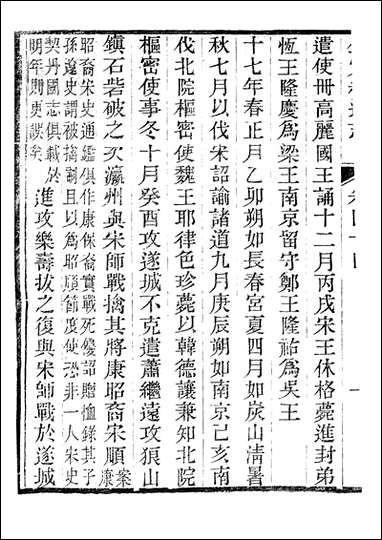 遣使冊高麗國王誦十二月丙戌宋王休格薨進封弟
恆王隆慶爲梁王南京留守鄭王隆祐爲吳王
十七年春正月乙卯朔如長春宮夏四月如炭山清暑
秋七月以伐宋詔諭諸道九月庚辰朔如南京己亥南
伐北院樞密使魏王耶律色珍薨以韓德讓兼知北院
樞密使事冬十月癸酉攻遂城不克遣蕭繼遠攻狼山
鎮石砦破之次瀛州與宋師戰擒其將康昭裔宋順案康
昭裔宋史通鑑俱作康保裔實戰死優詔贈恤錄其子
孫遼史謂被擒且以爲昭順節度使恐非一人宋史
契丹國志俱載於
明年則更誤矣
進攻樂壽拔之復與宋師戰於遂城